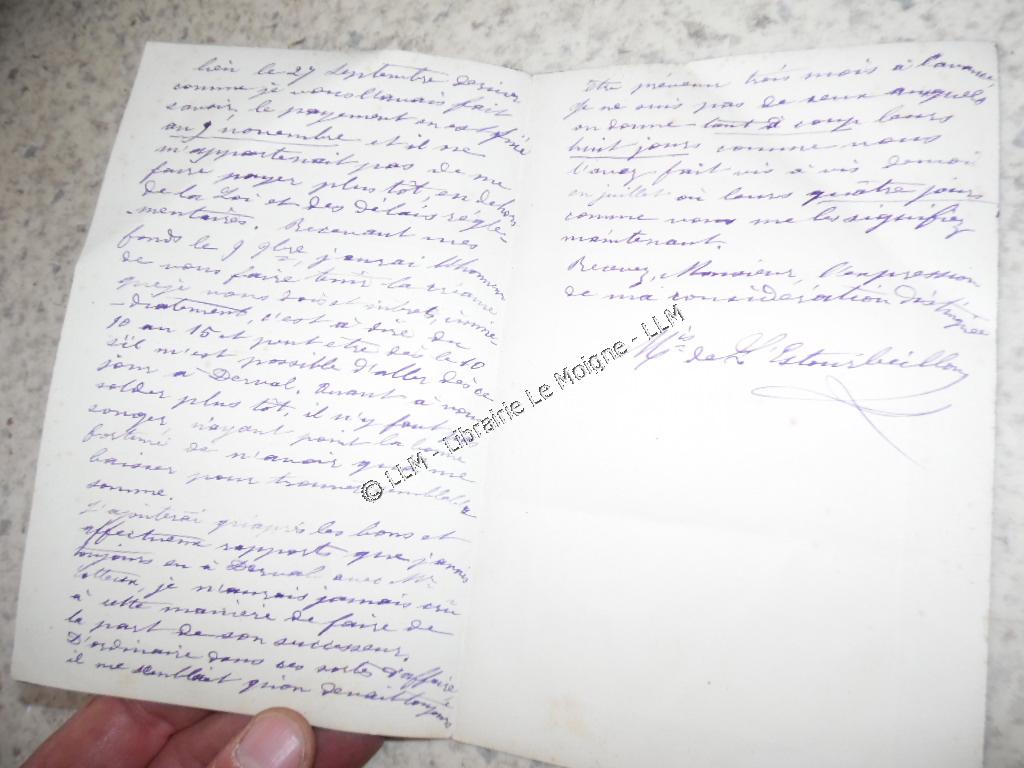 bien le 27 Septembre dernier
comme je vous l'avais fait
savoir le payement en est fixé
au 9 novembre et il ne
m'appartenait pas de me
faire payer plus tôt, en dehors
de la Loi et des délais régle-
mentaires. Recevant mes
fonds le 9 9bre, j'aurai l'honneur
de vous faire tenir la
que je vous dois et immé-
-diatement, c'est à dire du
10 au 15 et peut être dès le 10
s'il m'est possible d'aller dès ce
jour à Derval. Quant à vous
solder plus tôt, il n'y faut
songer, n'ayant point la bonne
fortune de n'avoir qu'à me
baisser pour trouver semblable
somme.
J'ajouterai qu'après les bons et
affectueux rapports que j'avais
toujours eu à Derval avec Mr
je n'aurais jamais cru
à cette manière de faire de
la part de son successeur.
D'ordinaire dans ces sortes d'affaire
il me semblait qu'on devait toujours
être prévenu trois mois à l'avance
Je ne suis pas de ceux auxquels
on donne tout à coup leurs
huit jours comme vous
l'avez fait vis à vis de moi
en juillet ou leurs quatre jours
comme vous me les signifiez
maintenant.
Recevez, Monsieur, l'expression
de ma considération distinguée
Mis de L'Estourbeillon
© LLM - Librairie Le Moigne - LLM